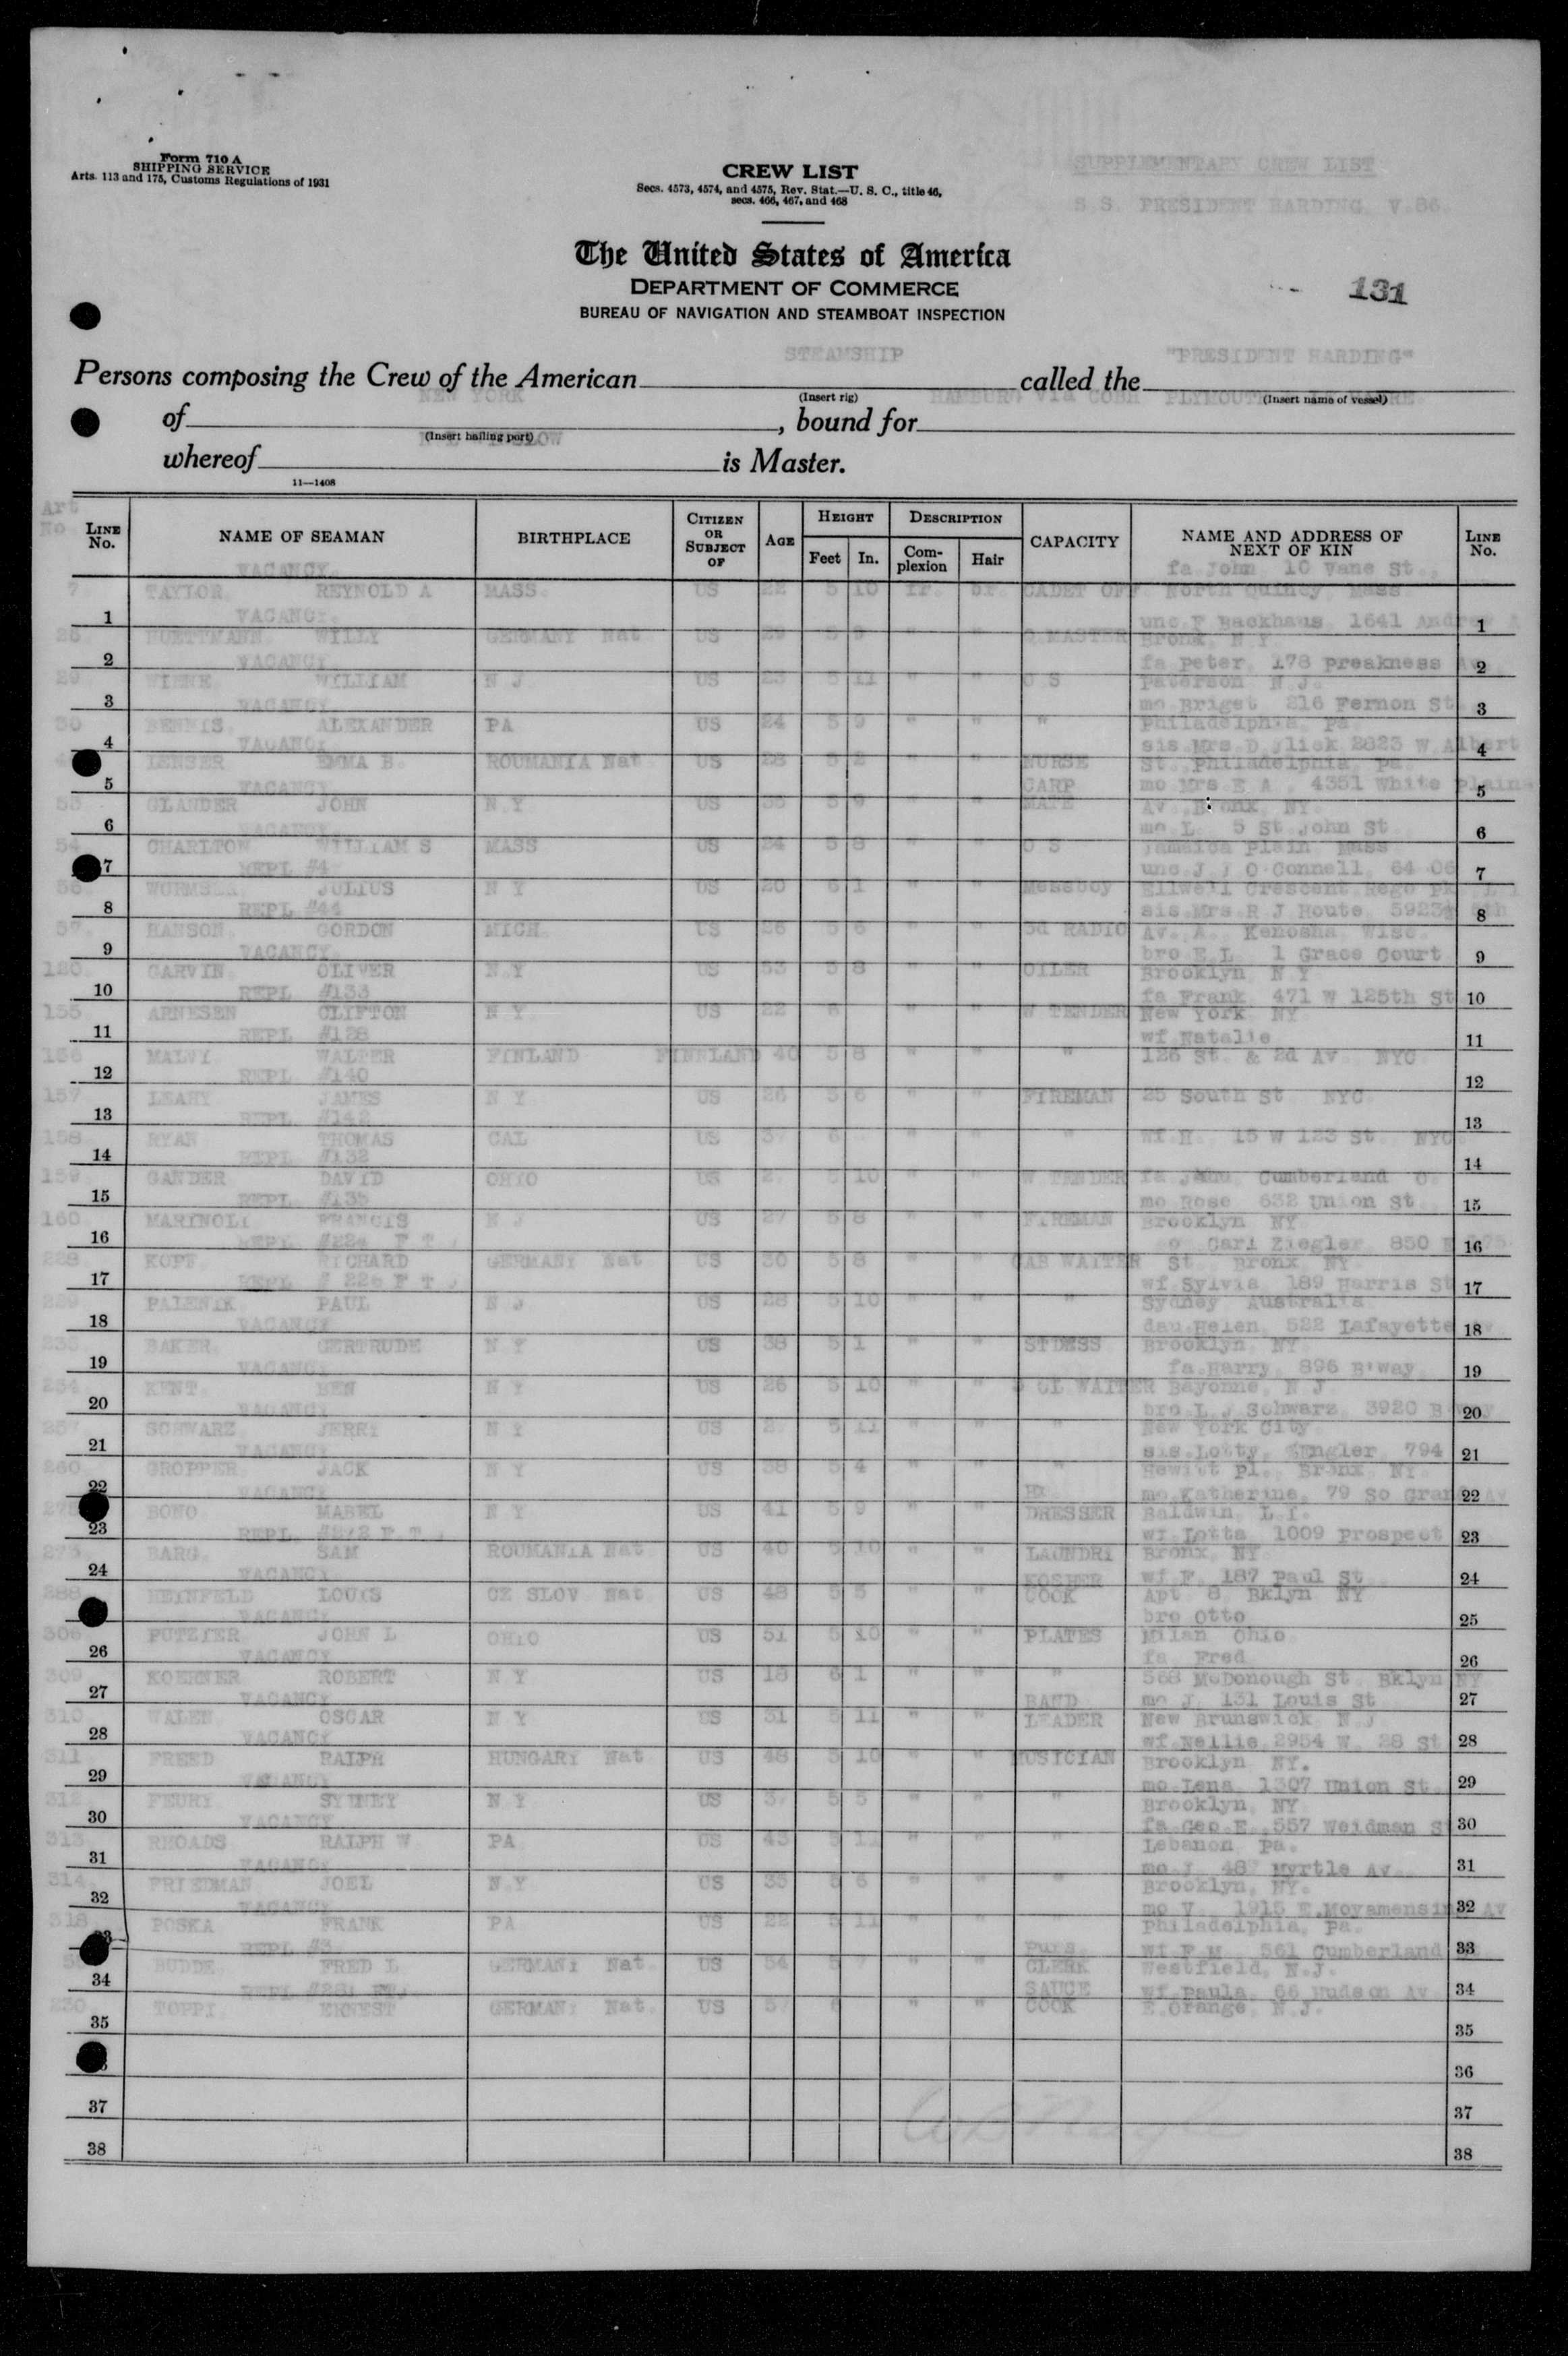 Form 710 A
SHIPPING SERVICE
Arts. 113 and 175, Customs Regulations of 1931
CREW LIST
Secs. 4573, 4574, and 4575, Rev. Stat.—U. S. C., title 46,
secs. 466, 467, and 468
SUPPLEMENTARY CREW LIST
S S. PRESIDENT HARDING V.86.
The United States of America
DEPARTMENT OF COMMERCE
BUREAU OF NAVIGATION AND STEAMBOAT INSPECTION
131
STEAMSHIP "PRESIDENT HARDING"
Persons composing the Crew of the American called the
(Insert rig) (Insert name of vessel)
NEW YORK HAMBURG Via COBH PLYMOUTH
of , bound for
(Insert hailing port)
whereof is Master.
11—1408
Art No
LINE No. NAME OF SEAMAN BIRTHPLACE CITIZEN OR SUBJECT OF AGE HEIGHT Feet In. DESCRIPTION Complexion Hair CAPACITY NAME AND ADDRESS OF NEXT OF KIN LINE No.
VACANCY fa John 10 Vane St.
7 TAYLOR REYNOLD A MASS. US 22 5 10 fr. br. CADET OFF North Quincy, Mass
1 VACANCY unc F Backhaus 1641 1
WILLY GERMANY Nat US 29 " " Q MASTER Bronx, N Y
2 VACANCY fa Peter 178 Preakness 2
29 WILLIAM N J US 23 5 11 " " O S Paterson N J.
3 VACANCY mo Briget 216 Fernon St 3
30 ALEXANDER PA US 24 5 9 " " " Philadelphia, Pa
4 VACANCY sis Mrs D 2623 W Albert 4
LENSER EMMA B. ROUMANIA Nat US 5 2 " " NURSE St. Philadelphia, Pa.
5 VACANCY CARP mo Mrs E A 4351 White Plains 5
GLANDER JOHN N Y US 5 9 " " MATE Av. Bronx, NY.
6 VACANCY mo L. 5 St John St 6
54 CHARLTON WILLIAM S MASS US 24 5 8 " " O S Jamaica Plain Mass
7 REPL #4 unc J J O Connell 64 06 7
JULIUS N Y US 20 6 1 " " Messboy Ellwell Crescent Rego Pk
8 REPL #44 sis Mrs R J Route 5923½ 8
57 HANSON GORDON MICH US 26 5 6 " " 3d RADIO Av. A. Kenosha Wisc.
9 VACANCY bro E L 1 Grace Court 9
120 GARVIN OLIVER N Y US 53 5 8 " " OILER Brooklyn N Y
10 REPL #133 fa Frank 471 W 125th St 10
155 ARNESEN CLIFTON N Y US 22 6 " " W TENDER New York NY
11 REPL #128 wf Natalie 11
156 WALTER FINLAND FINNLAND 40 5 8 " " " 126 St. & 2d Av NYC
12 REPL #140 12
157 LEAHY JAMES N Y US 26 5 6 " " FIREMAN 25 South St NYC
13 REPL #142 13
158 RYAN THOMAS CAL US 37 6 " " " wf H. 15 W 123 St. NYC
14 REPL #132 14
159 GANDER DAVID OHIO US 5 10 " " W TENDER fa Cumberland O.
15 REPL #135 mo Rose 632 Union St. 15
160 MARINOLI FRANCIS N J US 27 5 8 " " FIREMAN Brooklyn NY
16 REPL #224 F T. Carl Ziegler 850 16
228 KOPF RICHARD GERMANY Nat US 30 5 8 " " CAB WAITER St Bronx NY
17 REPL # 226 F T. wf Sylvia 189 Harris St 17
229 PALENIK PAUL N J US 28 5 10 " " " Sydney Australia
18 VACANCY dau Helen 522 Lafayette 18
BAKER GERTRUDE N Y US 38 5 1 " " STDESS Brooklyn, NY
19 VACANCY fa Harry 896 B'way. 19
254 KENT BEN N Y US 26 5 10 " " CL WAITER Bayonne, N J.
20 VACANCY bro L J Schwarz 3920 20
257 SCHWARZ JERRY N Y US 5 11 " " " New York City
21 VACANCY sis Lotty 794 21
260 GROPPER JACK N Y US 38 5 4 " " " Hewitt Pl. Bronx NY.
22 VACANCY mo Katherine, 79 So Grand Av 22
BONO MABEL N Y US 41 5 9 " " DRESSER Baldwin, L I.
23 REPL F T. wf Lotta 1009 Prospect 23
BARG SAM ROUMANIA Nat US 40 5 10 " " LAUNDRY Bronx, NY
24 VACANCY KOSHER wf F. 187 Paul St 24
288 HEINFELD LOUIS CZ SLOV Nat US 48 5 5 " " COOK Apt 8 Bklyn NY
VACANCY bro Otto 25
306 JOHN L OHIO US 51 5 10 " " PLATES Milan Ohio
26 VACANCY fa Fred 26
309 KOERNER ROBERT N Y US 18 6 1 " " " 568 McDonough St Bklyn NY
27 VACANCY BAND mo J. 131 Louis St 27
310 WALEN OSCAR N Y US 31 5 11 " " LEADER New Brunswick N J
28 VACANCY wf Nellie 2954 W. 28 St 28
311 FREED RALPH HUNGARY Nat US 48 5 10 " " MUSICIAN Brooklyn NY.
29 VACANCY mo Lena 1307 Union St. 29
312 FEURY SYDNEY N Y US 5 5 " " " Brooklyn, NY
30 VACANCY fa Geo E. 557 Weidman 30
313 RHOADS RALPH W PA US 43 5 " " " Lebanon Pa.
31 VACANCY mo J 487 Myrtle Av. 31
314 FRIEDMAN JOEL N.Y US 35 5 6 " " Brooklyn, NY.
32 VACANCY mo V 1915 E.Moyamensing Av 32
318 POSKA FRANK PA US 22 5 11 " " " Philadelphia, Pa.
REPL #3 Purs wf F M 561 Cumberland 33
BUDDE FRED L GERMANY Nat US 54 5 7 " " CLERK Westfield, N.J.
34 REPL SAUCE wf Paula 66 Hudson Av 34
230 TOPPI ERNEST GERMANY Nat. US 6 " " COOK E Orange N.J.
35 35
36
37 37
38 38